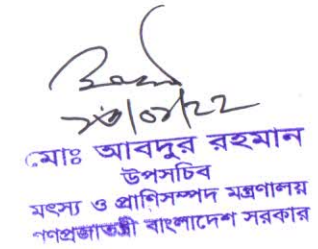 মোঃ আবদুর রহমান
উপসচিব
মৎস্য ও প্রাণিসম্পদ মন্ত্রণালয়
গণপ্রজাতন্ত্রী বাংলাদেশ সরকার